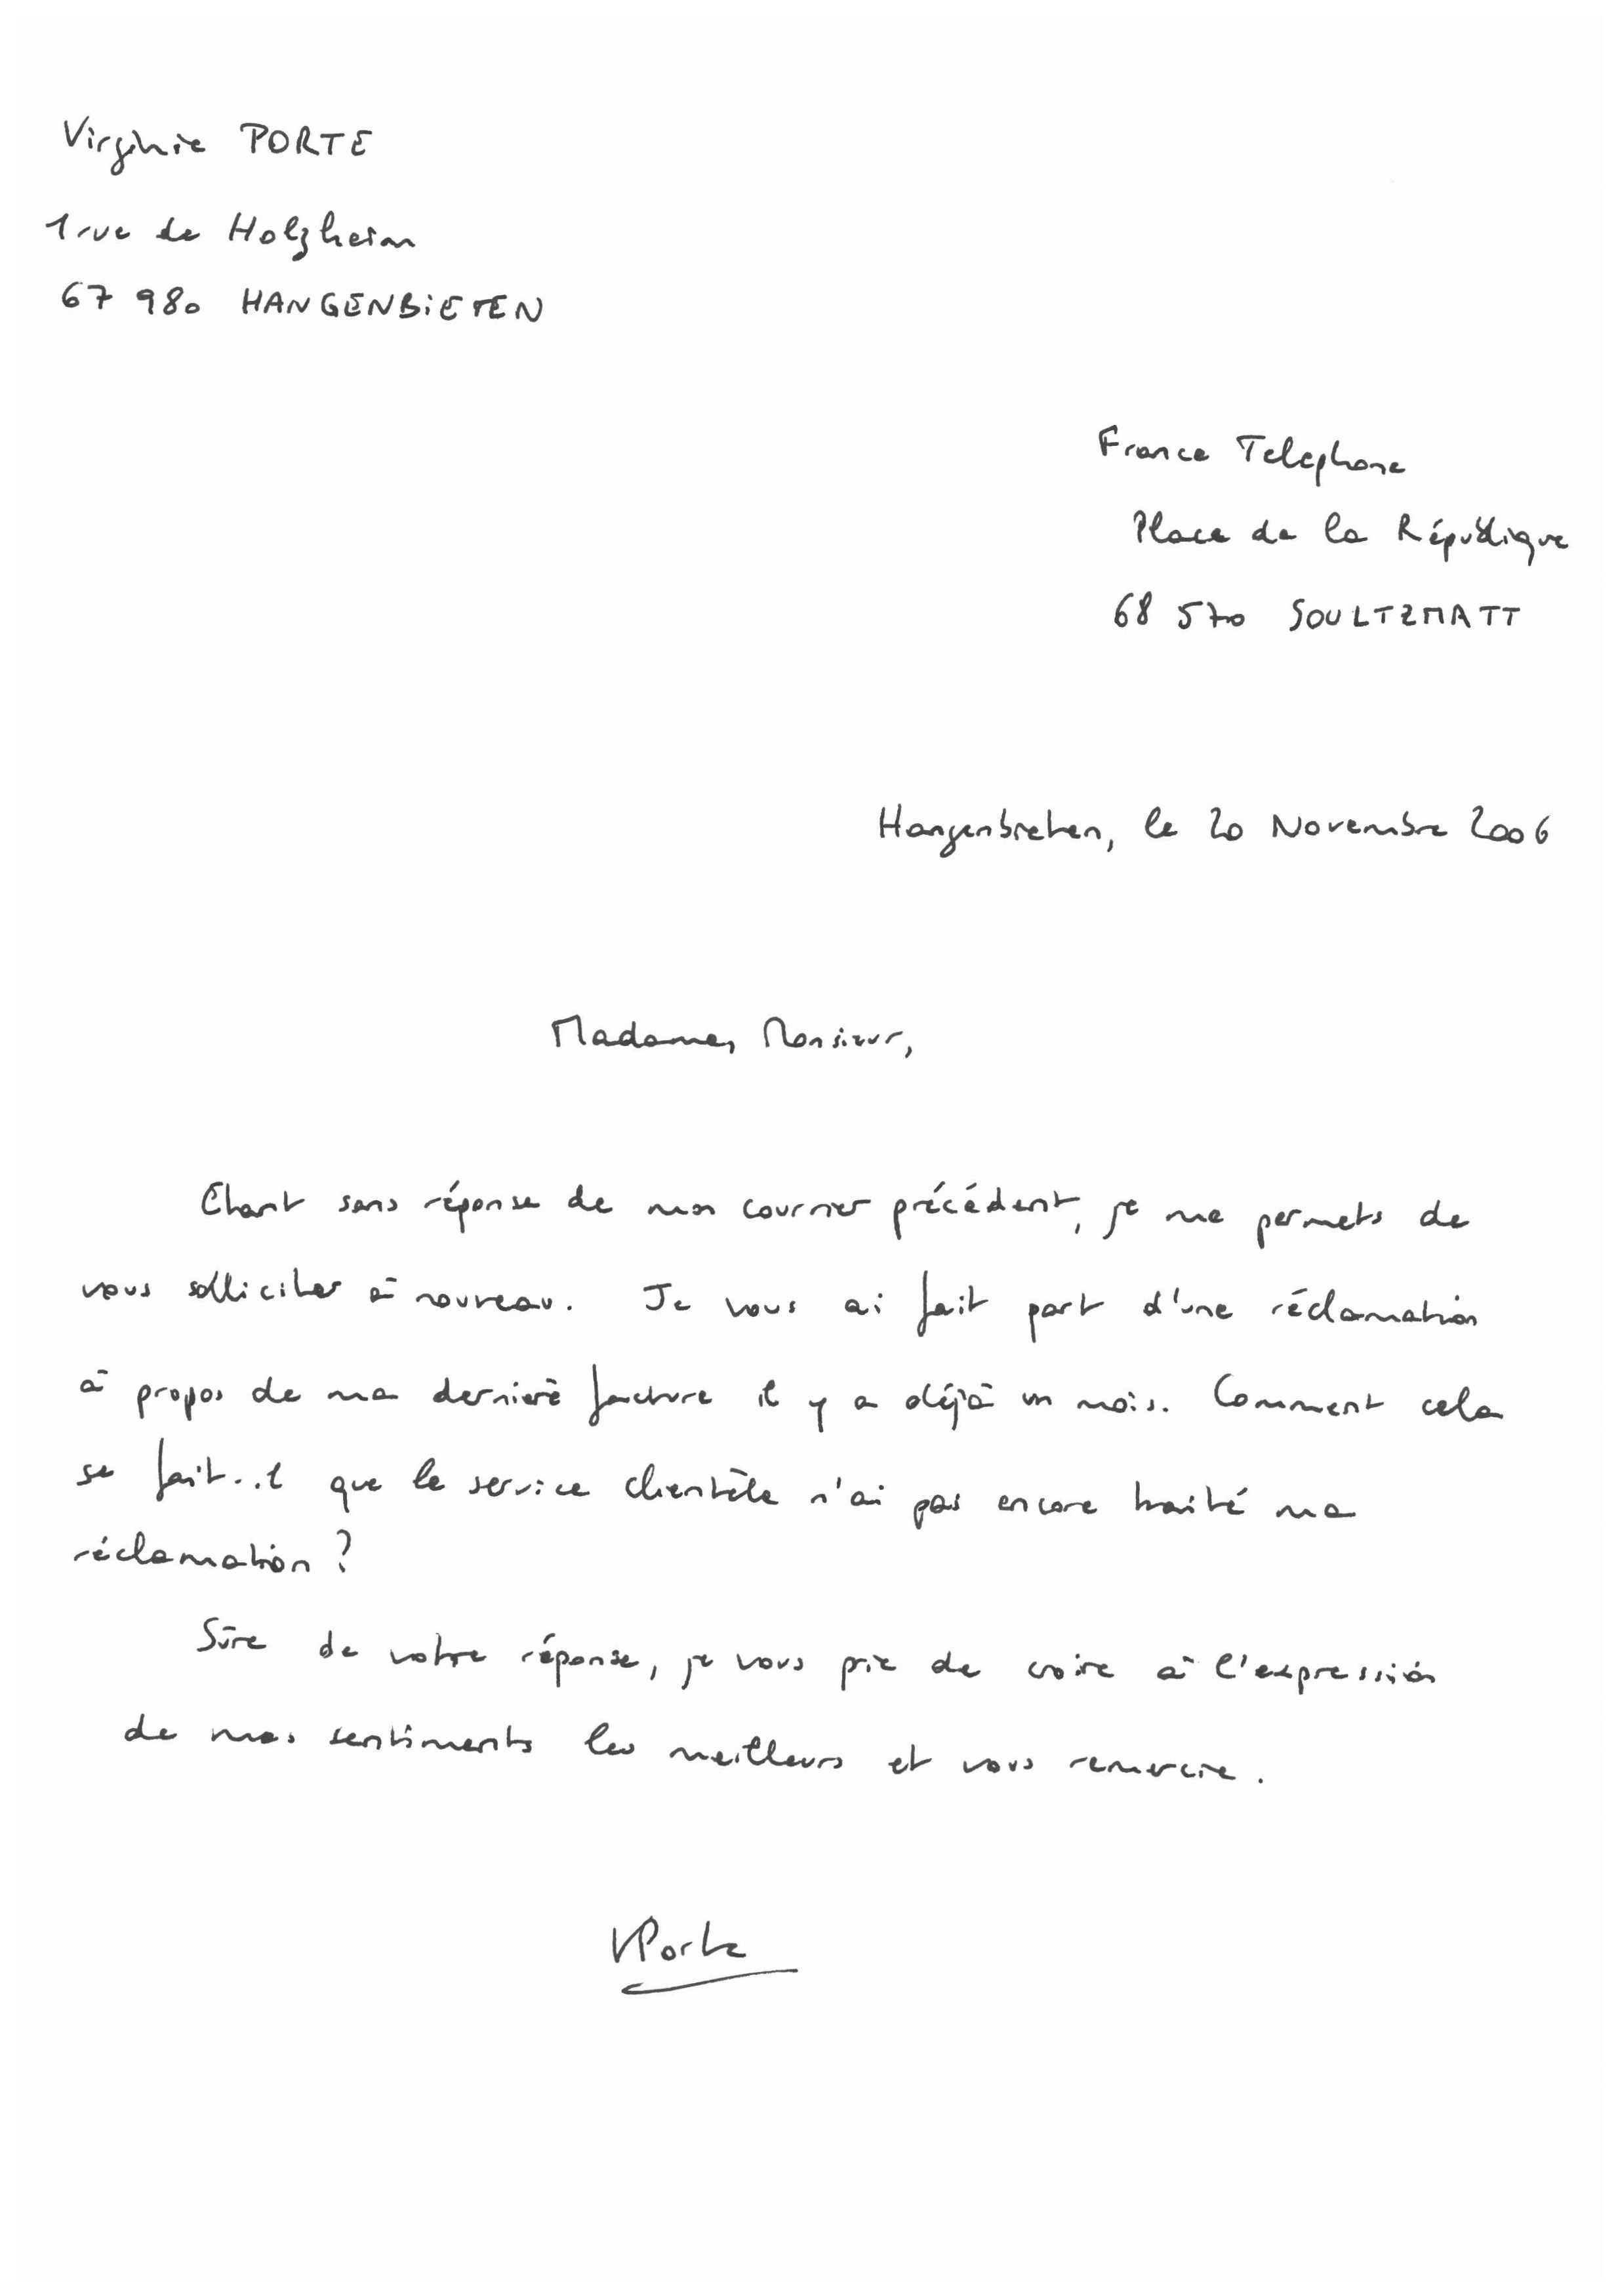 Virginie PORTE
1 rue de Holzheim
67 980 HANGENBIETEN
France Telephone
Place de la République
68 570 SOULTZMATT
Hangenbieten, le 20 Novembre 2006
Madame, Monsieur,
Etant sans réponse de mon courrier précédent, je me permets de
vous solliciter à nouveau. Je vous ai fait part d'une réclamation
à propos de ma dernière facture il y a déjà un mois. Comment cela
se fait-il que le service clientèle n'ai pas encore traité ma
réclamation ?
Sûre de votre réponse, je vous prie de croire à l'expression
de mes sentiments les meilleurs et vous remercie.
VPorte